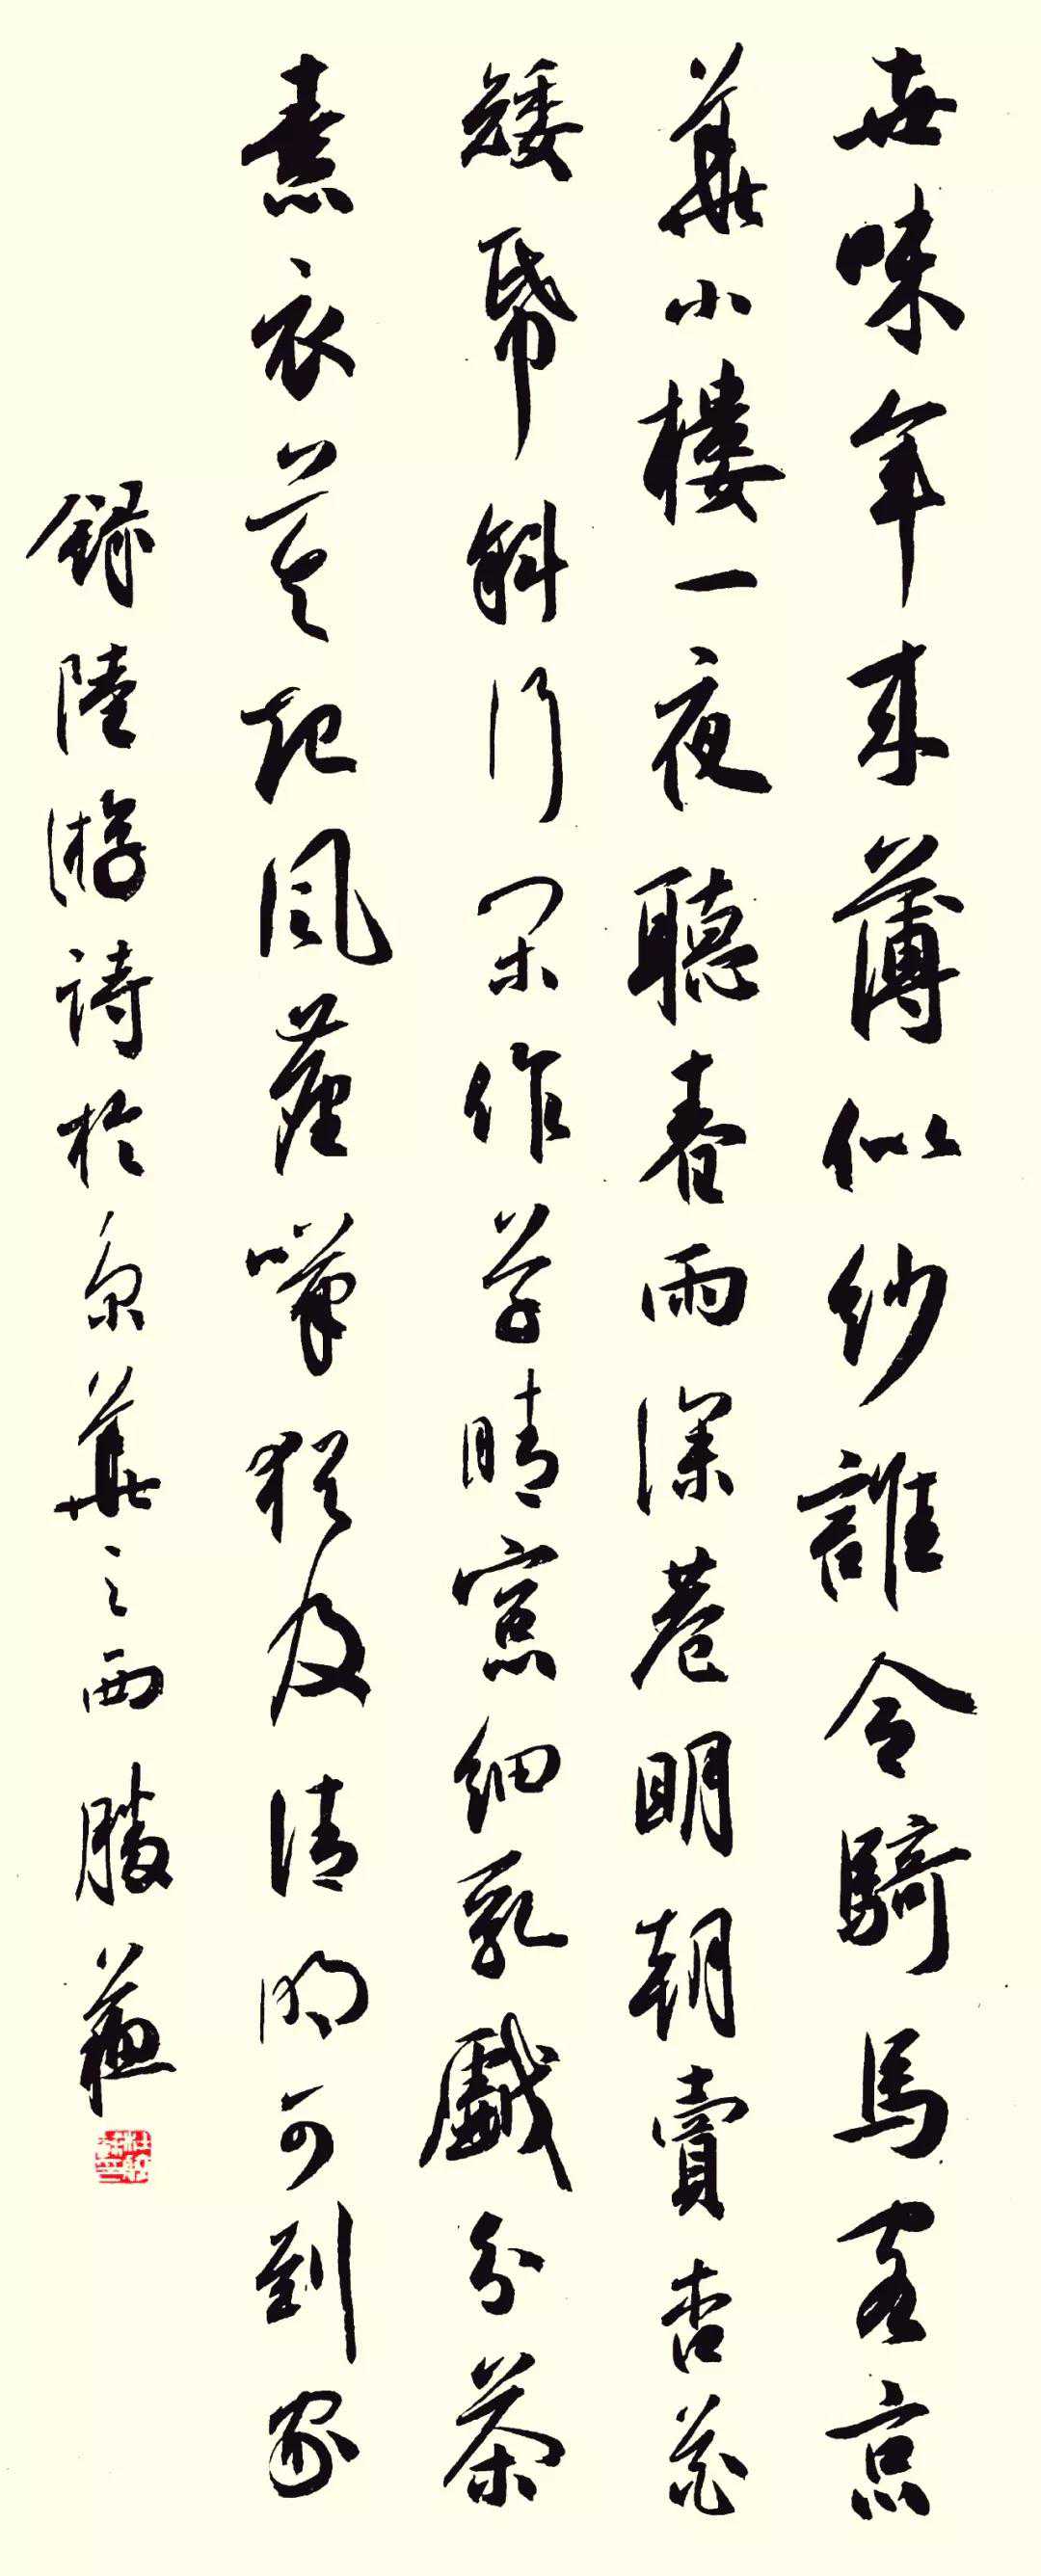 世味年来薄似紗誰令騎馬客京
華小樓一夜聽春雨深巷明朝賣杏花
矮帋斜行閑作草晴窓細乳戲分茶
素衣莫起風塵嘆猶及清明可到家
録陸游詩於京華之西勝